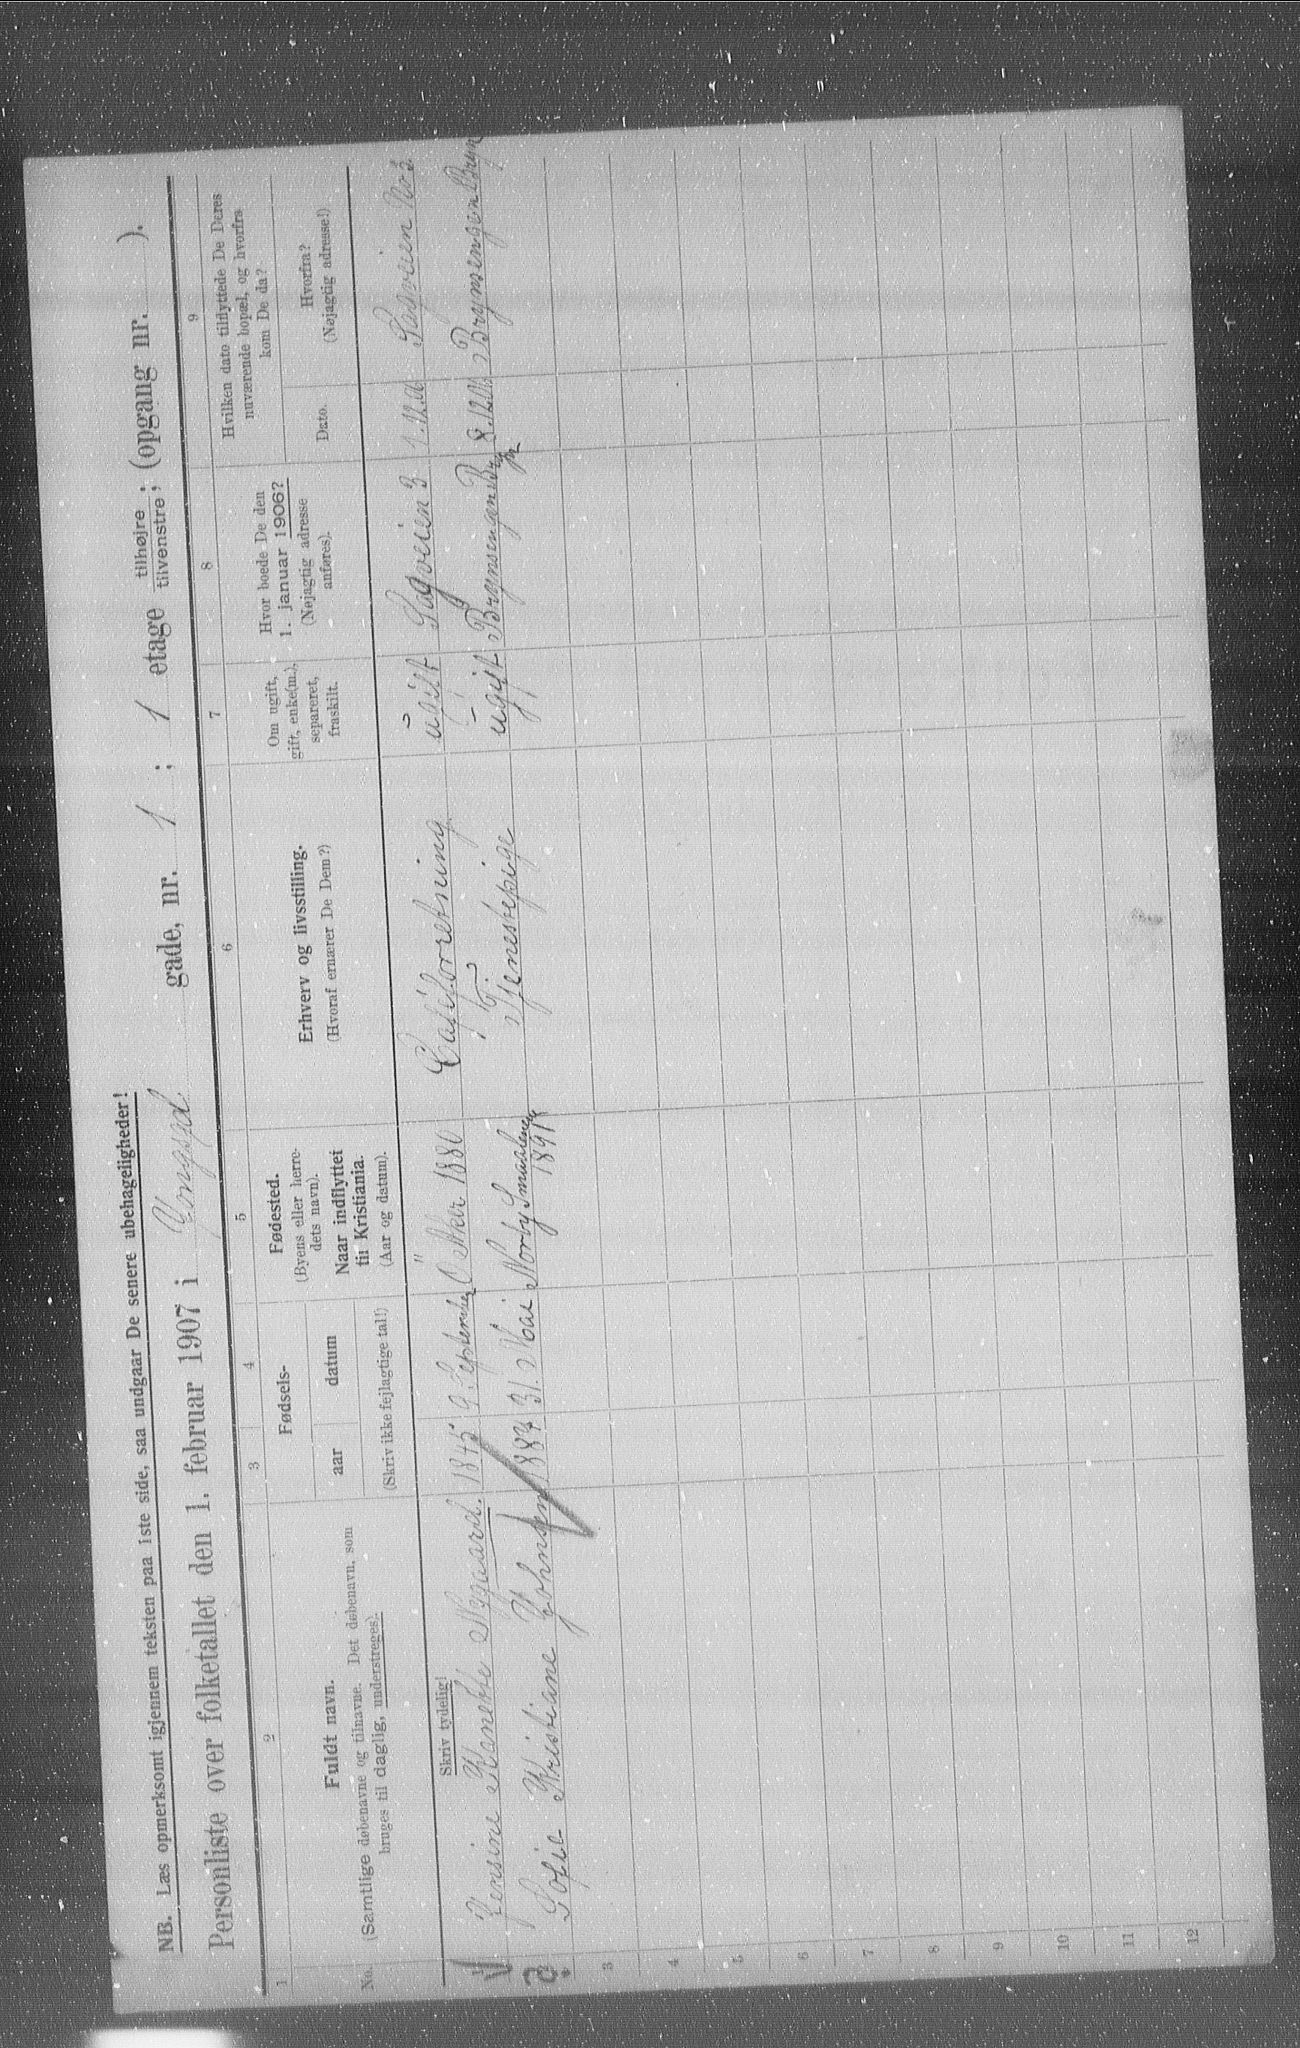 NB. Læs opmerksomt igjennem teksten paa 1ste side, saa undgaar De senere ubehageligheder!
Personliste over folketallet den 1. februar 1907 i gade, nr. 1 ; 1 etage tilhøjre ; tilvenstre ; (opgang nr. ).
1 2 3 4 5 6 7 8 9
No.
Fuldt navn.
(Samtlige døbenavne og tilnavne. Det døbenavn, som
bruges til daglig, understreges).
Fødsels-
aar datum
(Skriv ikke fejlagtige tal!)
Fødested.
(Byens eller herre-
dets navn).
Naar indflyttet
til Kristiania.
(Aar og datum).
Erhverv og livsstilling.
(Hvoraf ernærer De Dem?)
Om ugift,
gift, enke(m.),
separeret,
fraskilt.
Hvor boede De den
1. januar 1906?
(Nøjagtig adresse
anføres).
Hvilken dato tilflyttede De Deres
nuværende bopæl, og hvorfra
kom De da?
Dato.
Hvorfra?
(Nøjagtig adresse!)
Skriv tydelig!
Jensine Hanette Nygaard. 1845 9 September Ø Aker 1880 Caféforretning ugift Sagveien 3 1.12.06 Sagveien No 3
2 Sofie Kristiane Johnsen 1887 31. Mai Norby Smaalenene 1891 Tjenestepige ugift Brynsengen Bryn 8.12.06 Brynsengen Bryn
3
4
5
6
7
8
9
10
11
12